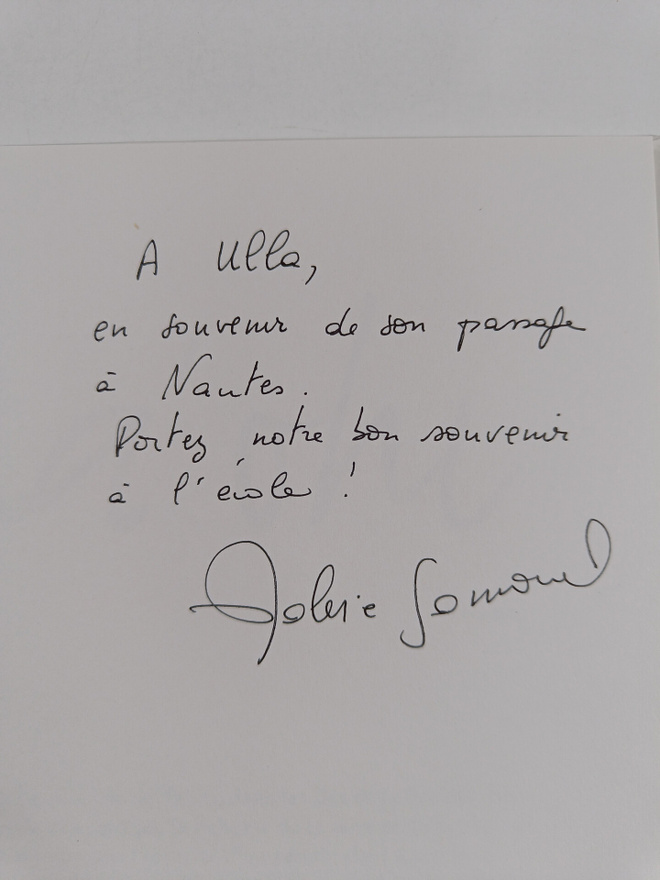 A Ulla,
en souvenir de son passage
à Nantes.
Portez notre bon souvenir
à l'école !